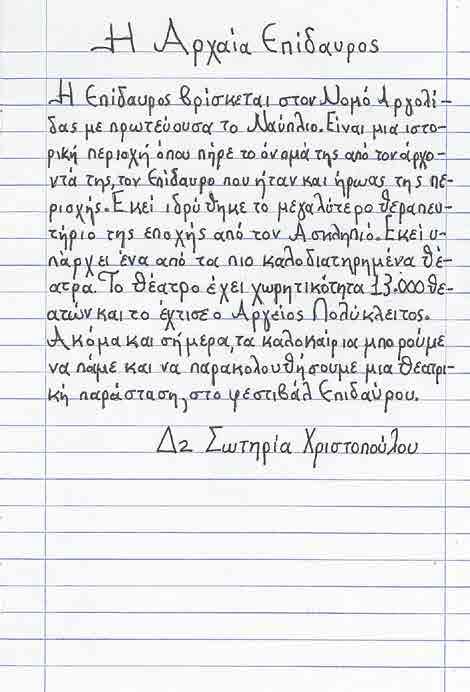 Η Αρχαία Επίδαυρος
Η Επίδαυρος βρίσκεται στον Νομό Αργολί-
δας με πρωτεύουσα το Ναύπλιο. Είναι μια ιστο-
ρική περιοχή όπου πήρε το όνομά της από τον άρχο-
ντά της, τον Επίδαυρο που ήταν και ήρωας της πε-
ριοχής. Εκεί ιδρύθηκε το μεγαλύτερο θεραπευ-
τήριο της εποχής από τον Ασκληπιό. Εκεί υ-
πάρχει ένα από τα πιο καλοδιατηρημένα θέ-
ατρα. Το θέατρο έχει χωρητικότητα 13.000 θε-
ατών και το έχτισε ο Αργείος Πολύκλειτος.
Ακόμα και σήμερα, τα καλοκαίρια μπορούμε
να πάμε και να παρακολουθήσουμε μια θεατρι-
κή παράσταση, στο φεστιβάλ Επιδαύρου.
Δ2 Σωτηρία Χριστοπούλου